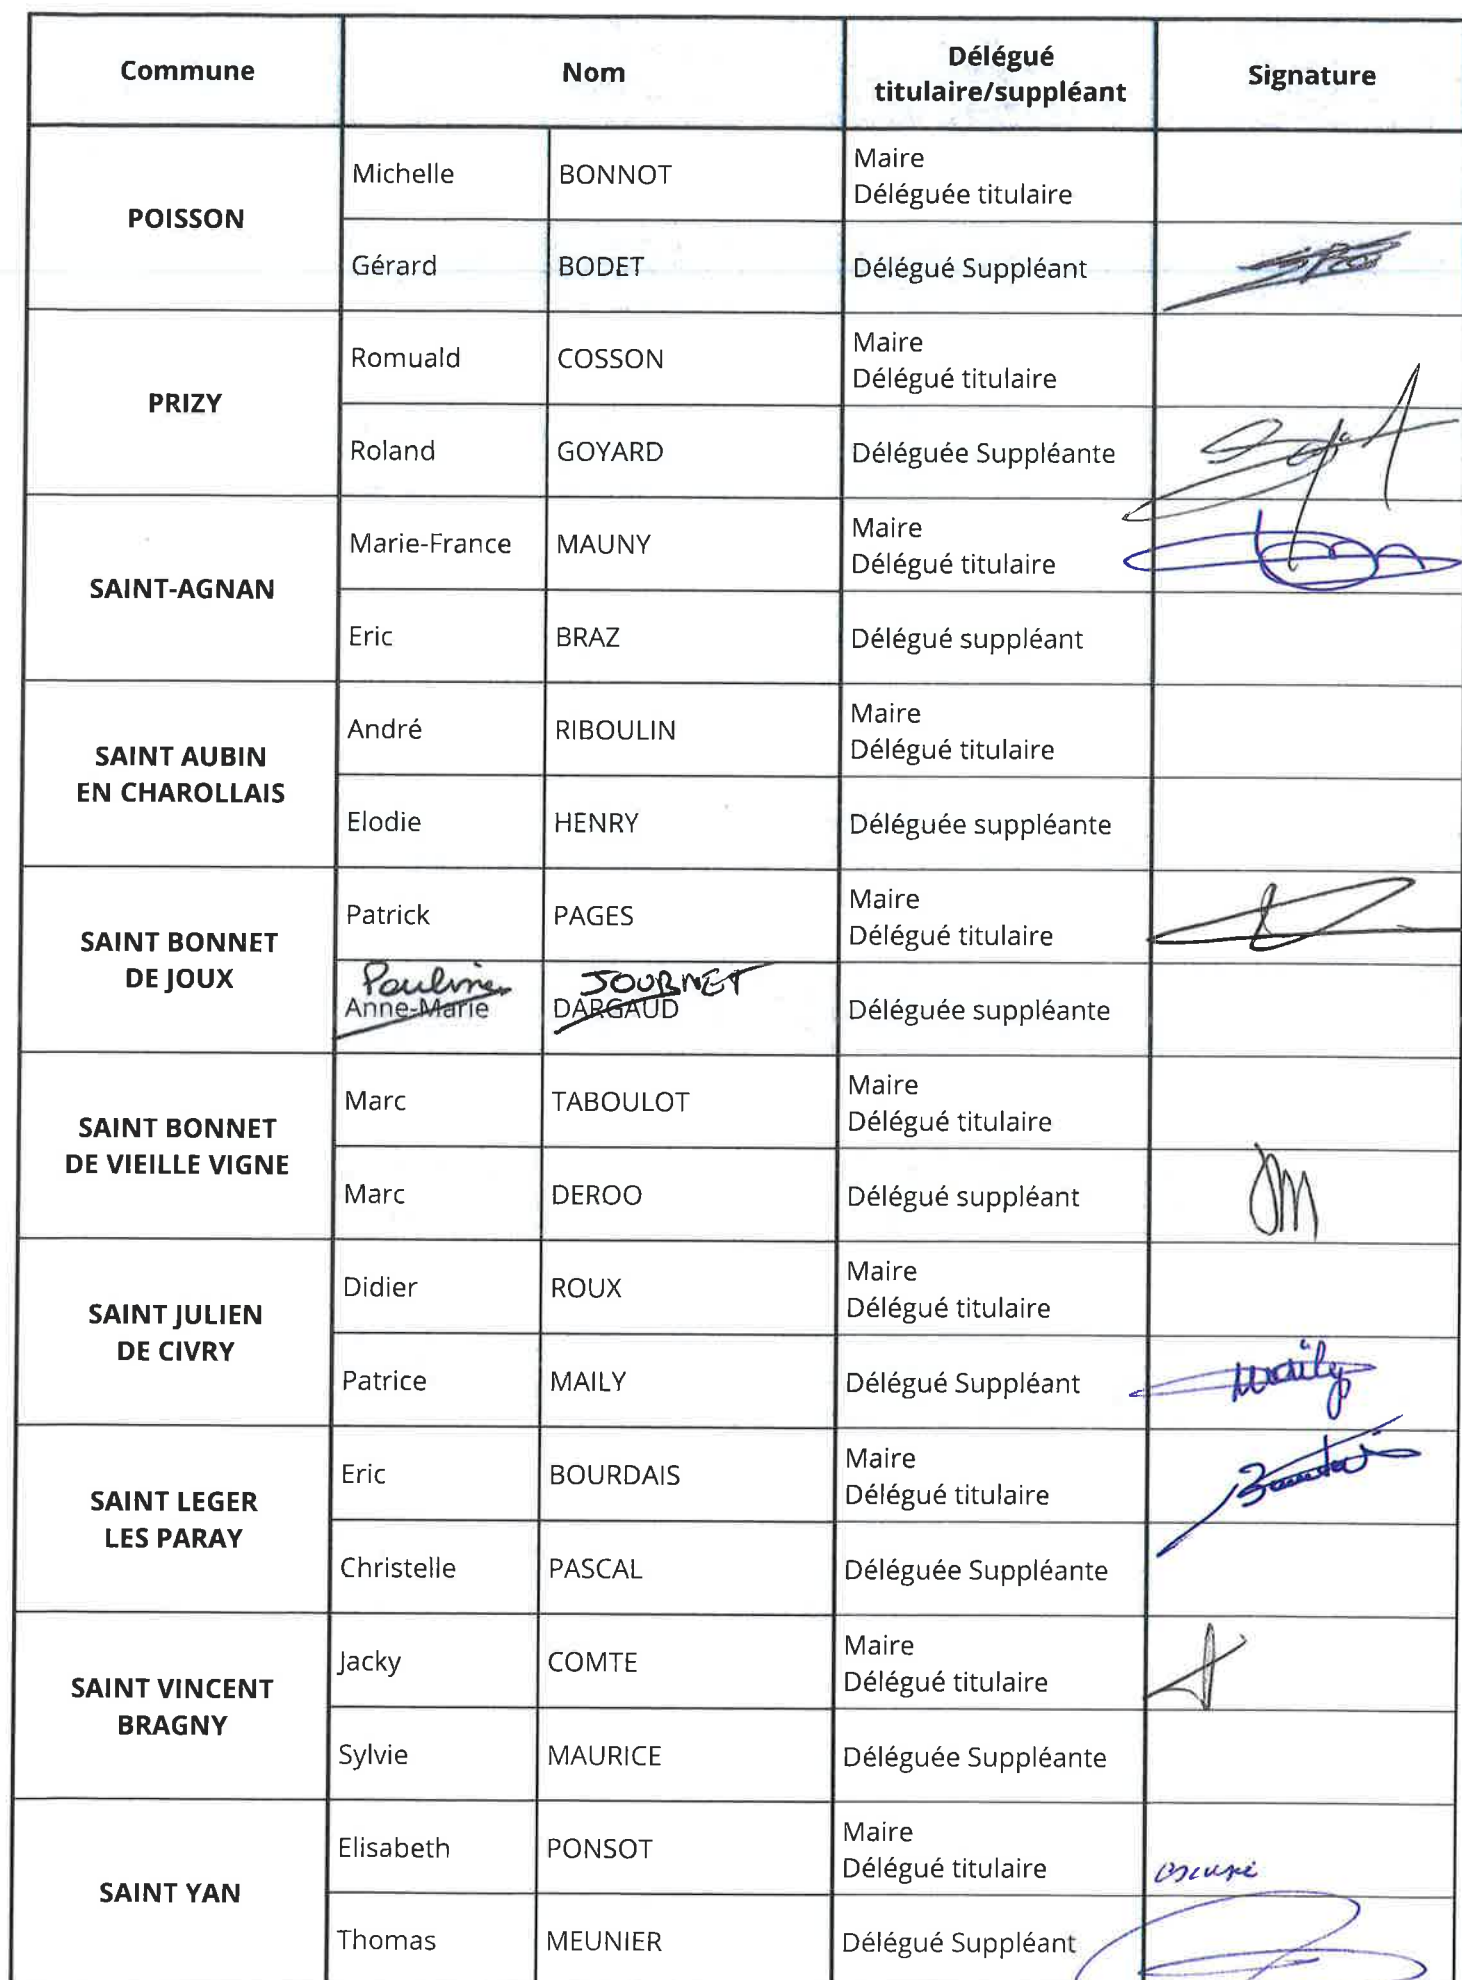 Commune Nom Délégué titulaire/suppléant Signature
POISSON
Michelle BONNOT Maire
Déléguée titulaire
Gérard BODET Délégué Suppléant
PRIZY
Romuald COSSON Maire
Délégué titulaire
Roland GOYARD Déléguée Suppléante
SAINT-AGNAN
Marie-France MAUNY Maire
Délégué titulaire
Eric BRAZ Délégué suppléant
SAINT AUBIN
EN CHAROLLAIS
André RIBOULIN Maire
Délégué titulaire
Elodie HENRY Déléguée suppléante
SAINT BONNET
DE JOUX
Patrick PAGES Maire
Délégué titulaire
Pauline JOURNET
Anne-Marie DARGAUD Déléguée suppléante
SAINT BONNET
DE VIEILLE VIGNE
Marc TABOULOT Maire
Délégué titulaire
Marc DEROO Délégué suppléant
SAINT JULIEN
DE CIVRY
Didier ROUX Maire
Délégué titulaire
Patrice MAILY Délégué Suppléant Maily
SAINT LEGER
LES PARAY
Eric BOURDAIS Maire
Délégué titulaire
Christelle PASCAL Déléguée Suppléante
SAINT VINCENT
BRAGNY
Jacky COMTE Maire
Délégué titulaire
Sylvie MAURICE Déléguée Suppléante
SAINT YAN
Elisabeth PONSOT Maire
Délégué titulaire
Thomas MEUNIER Délégué Suppléant